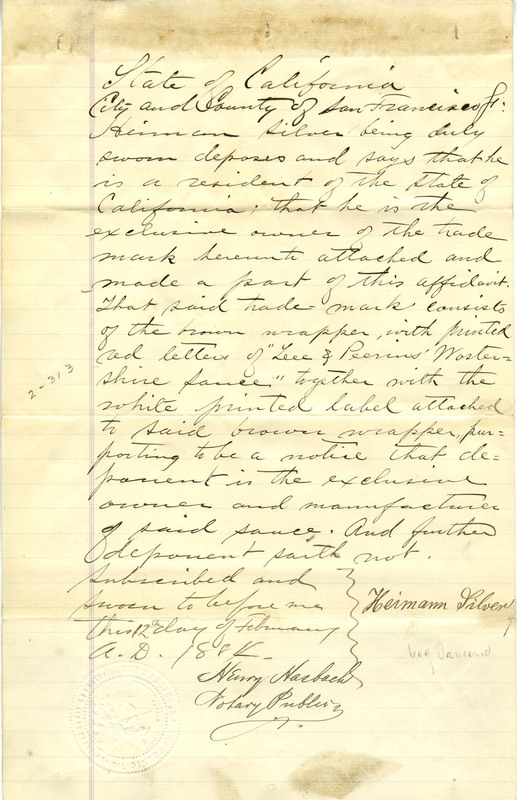 State of California
City and County of San Francisco ss:
Heiman Silver being duly
sworn deposes and says that he
is a resident of the State of
California; that he is the
exclusive owner of the trade
mark hereunto attached and
made a part of this affidavit.
That said trade-mark consists
of the brown wrapper, with printed
red letters of "Leee & Peerins' Worter-
shire Sauce" together with the
white printed label attached
to said brown wrapper, pur=
porting to be a notice that de=
ponent is the exclusive
owner and manufacturer
of said sauce. And further
deponent saith not.
Subscribed and
sworn to before me
this 12th day of February
A.D. 1884
Heimann Silver
Henry Hasbach
Notary Public
2-313